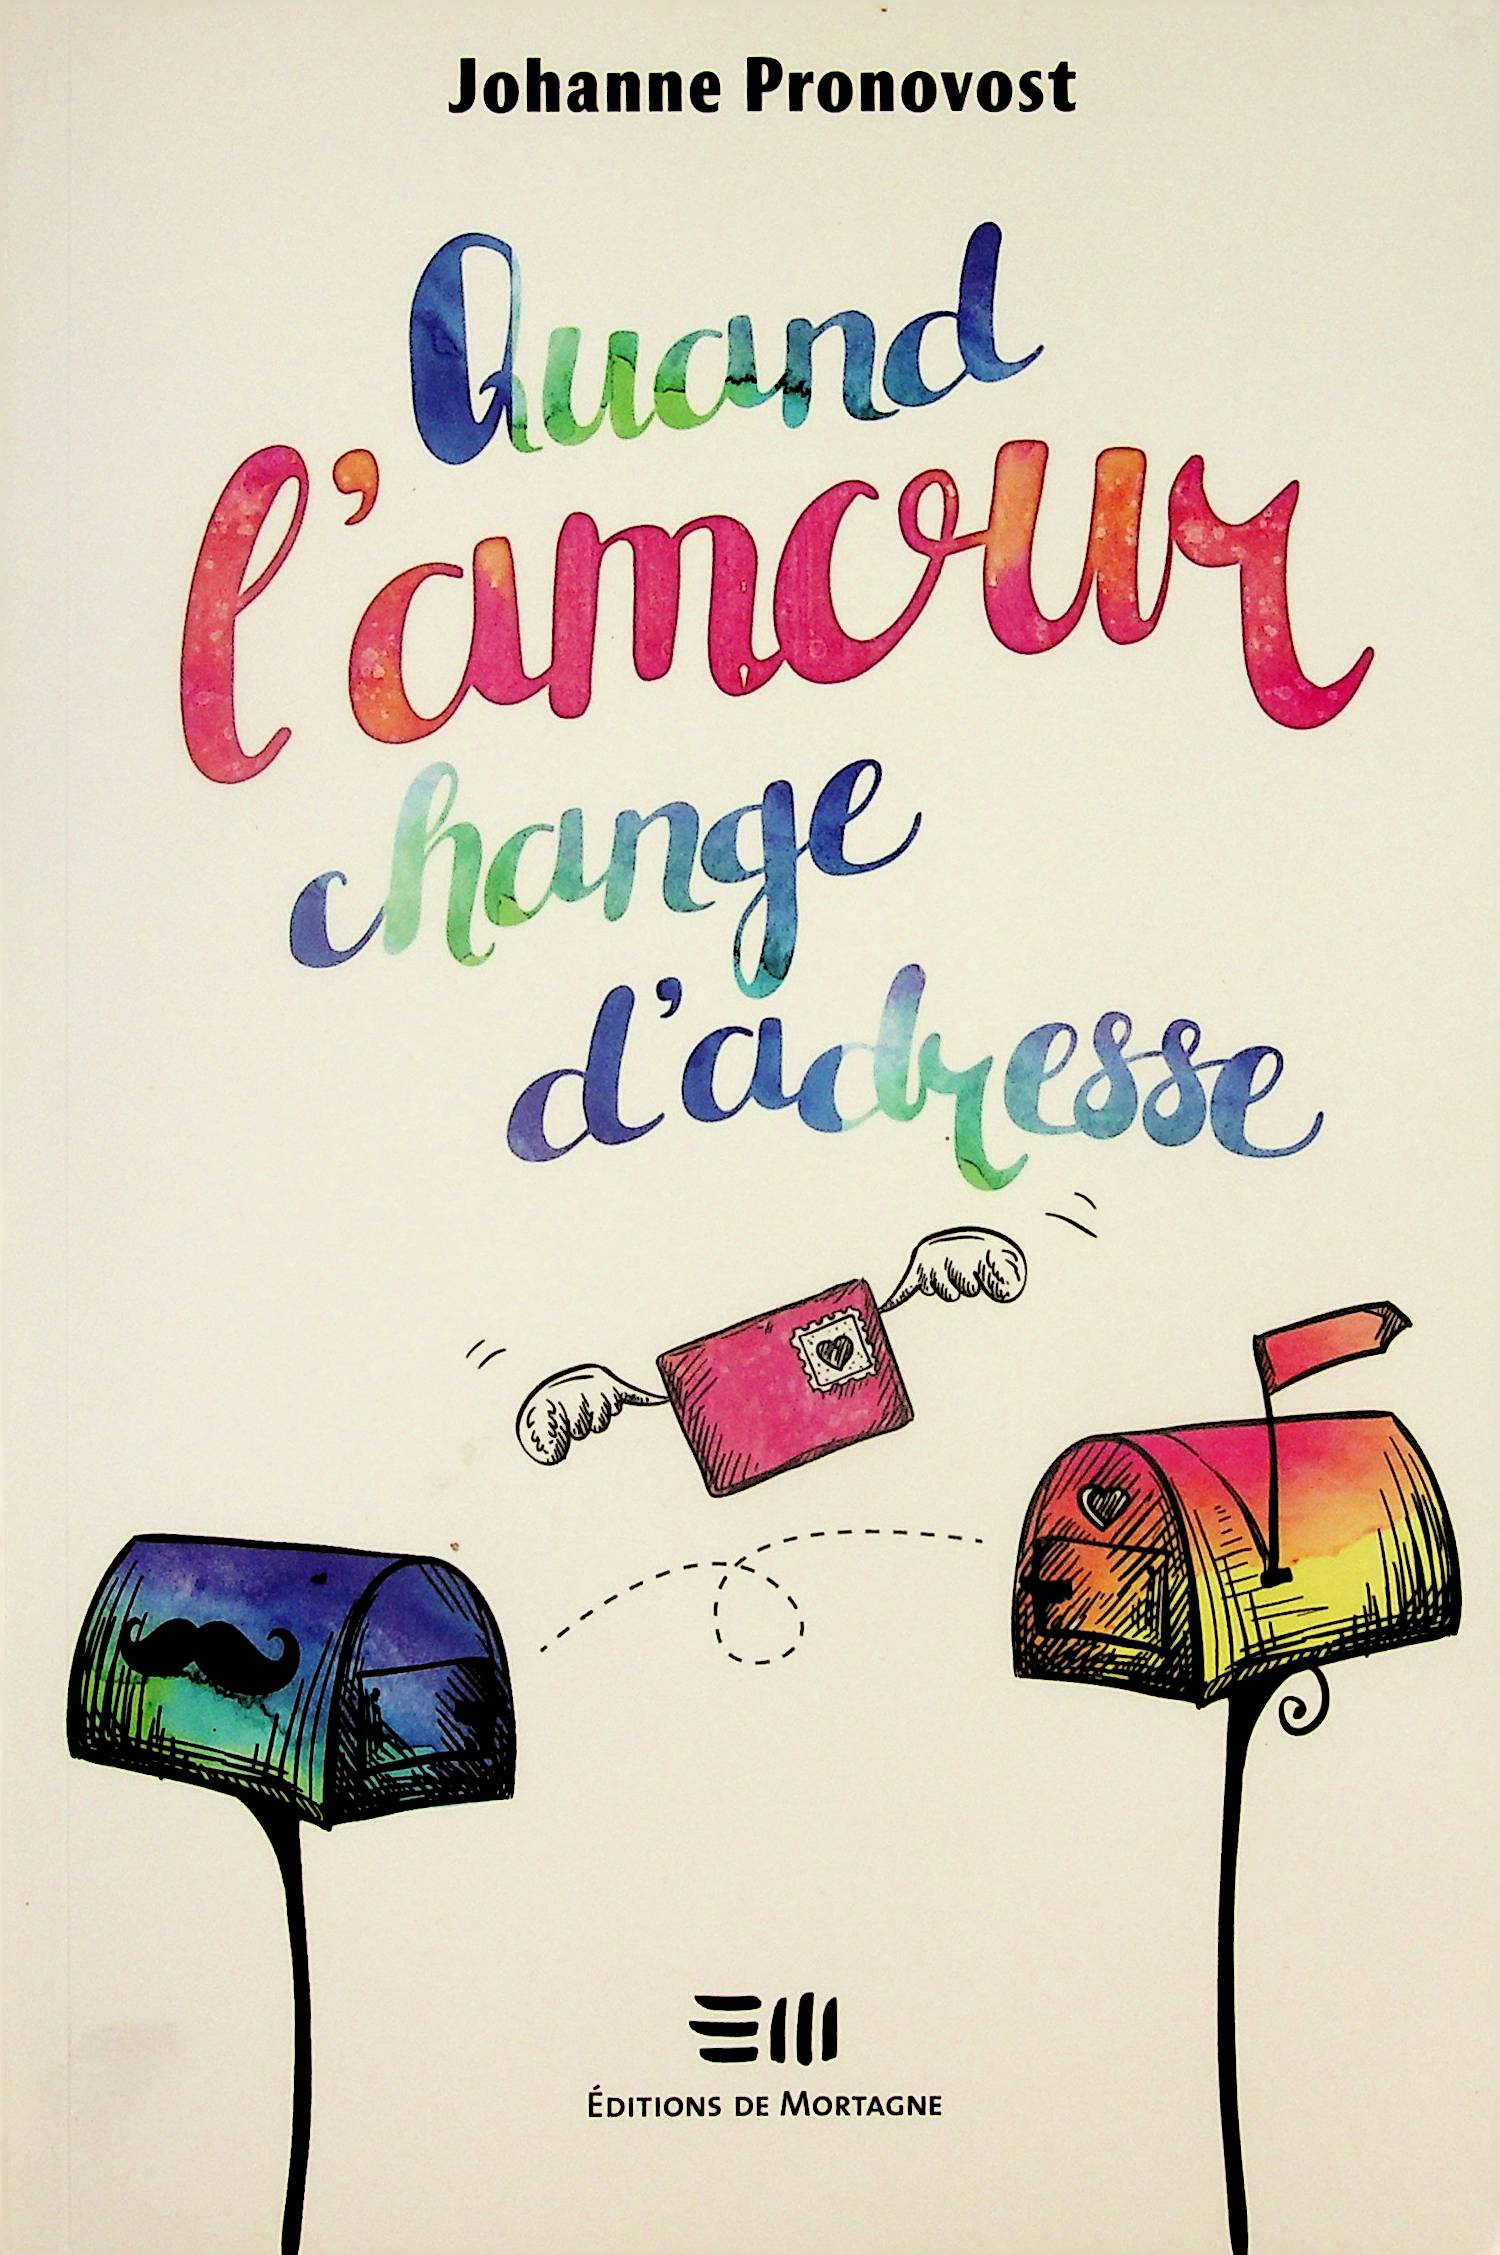 Johanne Pronovost
Quand
l'amour
change
d'adresse
EM
Éditions de Mortagne